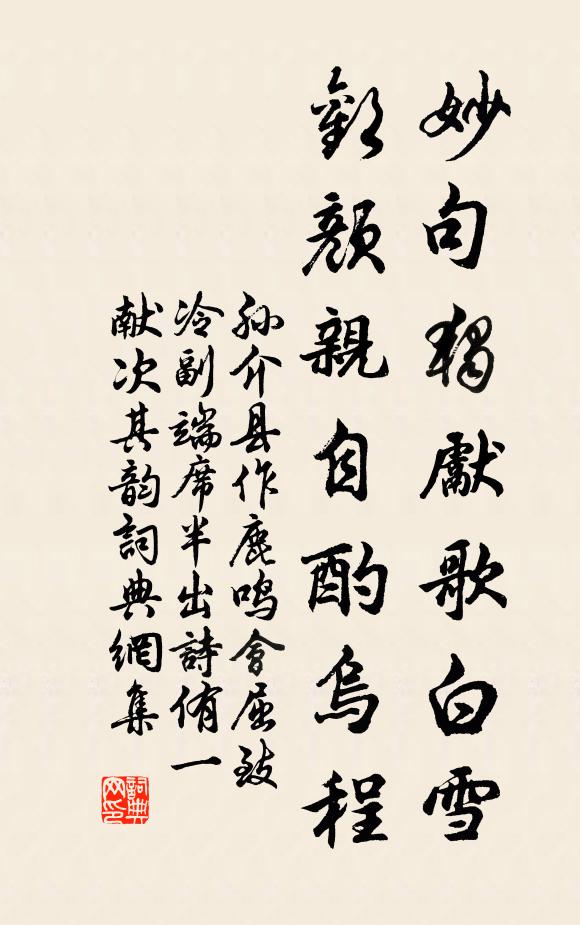 妙句獨獻歌白雪
歡顏親自酌烏程
孙介县作鹿鳴會屈致
冷副端席半出詩侑一
献次其韵詞典網集
詞典網印